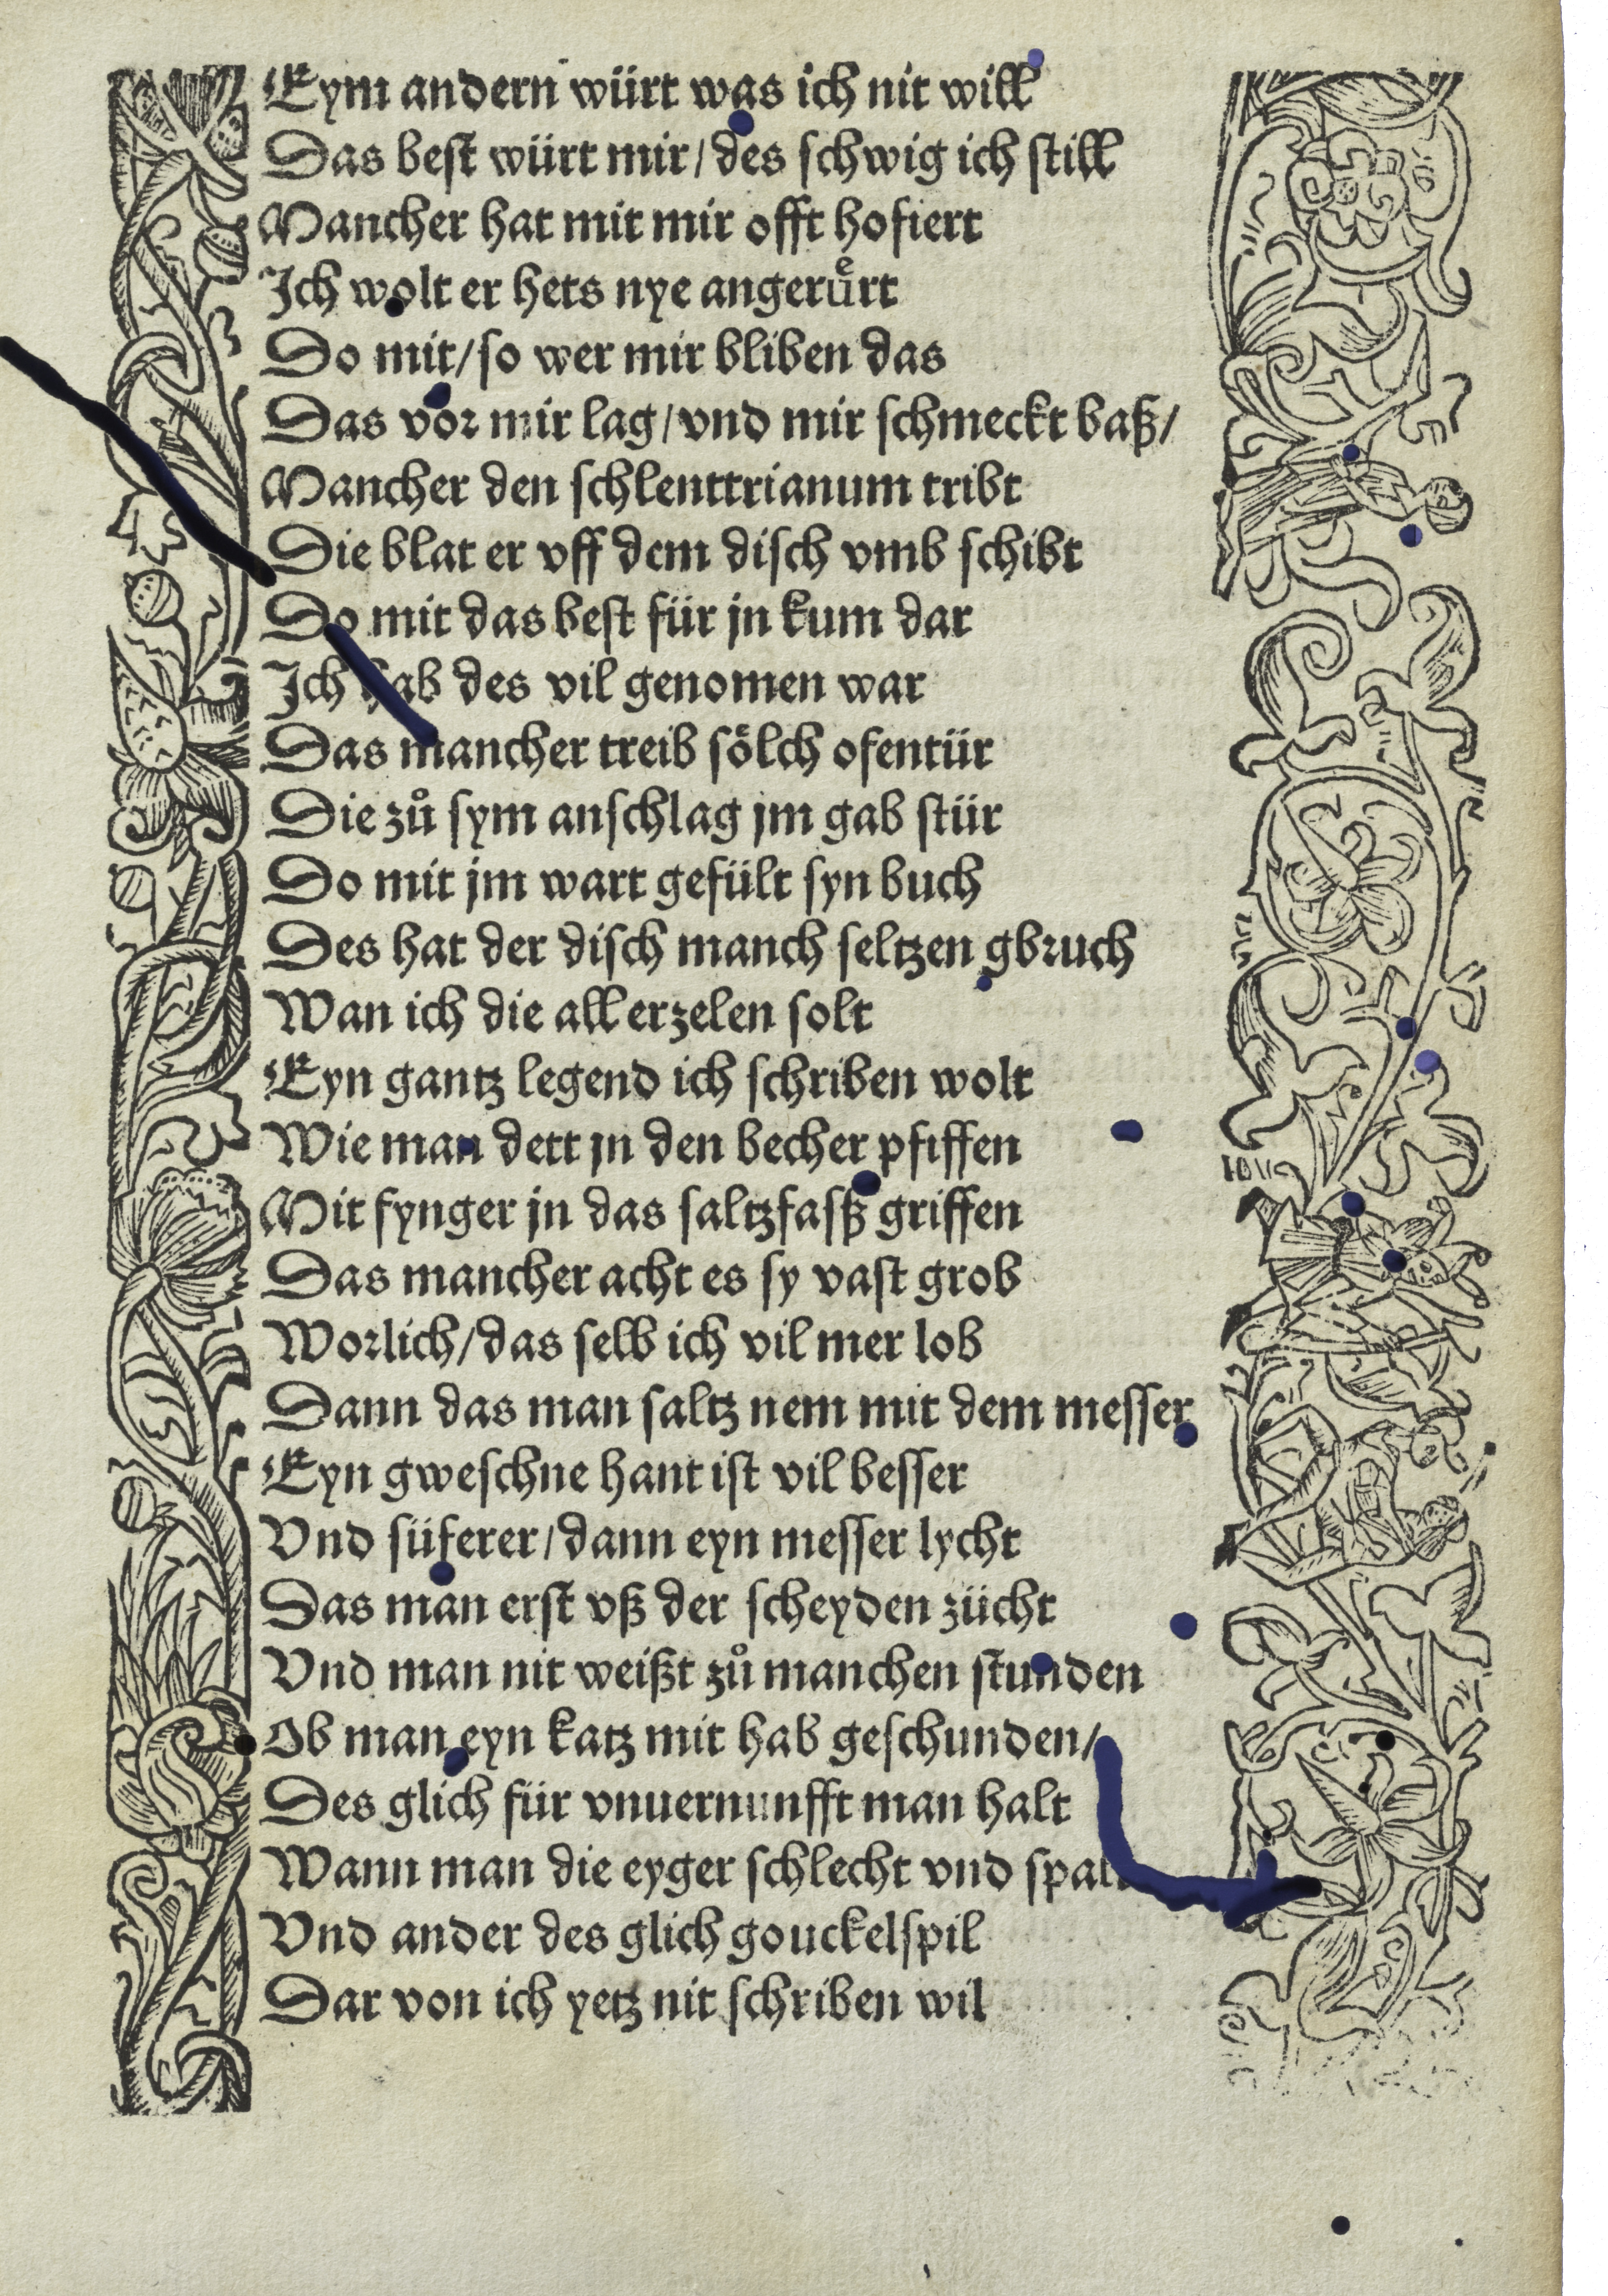 Eym andern würt was ich nit will
Das best würt mir/ des schwig ich still
Mancher hat mit mir offt hofiert
Ich wolt er hets nye angeruͤrt
Do mit/ so wer mir bliben das
Das vor mir lag/ vnd mir schmeckt baß/
Mancher den schlenttrianum tribt
Die blat er vff dem disch vmb schibt
Do mit das best für jn kum dar
Ich hab des vil genomen war
Das mancher treib sölch ofentür
Die zů sym anschlag jm gab stür
Do mit jm wart gefült syn buch
Des hat der disch manch seltzen gbruch
Wan ich die all erzelen solt
Eyn gantz legend ich schriben wolt
Wie man dett jn den becher pfiffen
Mit fynger jn das saltzfasß griffen
Das mancher acht es sy vast grob
Worlich/ das selb ich vil mer lob
Dann das man saltz nem mit dem messer
Eyn gweschne hant ist vil besser
Vnd süferer/ dann eyn messer lycht
Das man erst vß der scheyden zücht
Vnd man nit weißt zů manchen stunden
Ob man eyn katz mit hab geschunden/
Des glich für vnuernunfft man halt
Wann man die eyger schlecht vnd
Vnd ander des glich gouckelspil
Dar von ich yetz nit schriben wil